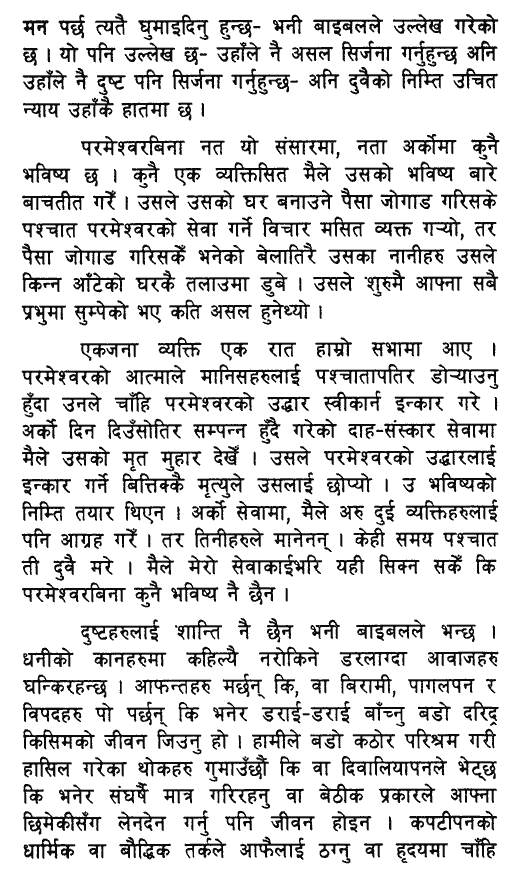 मन पर्छ त्यतै घुमाइदिनु हुन्छ- भनी बाइबलले उल्लेख गरेको
छ । यो पनि उल्लेख छ- उहाँले नै असल सिर्जना गर्नुहुन्छ अनि
उहाँले नै दुष्ट पनि सिर्जना गर्नुहुन्छ- अनि दुवैको निम्ति उचित
न्याय उहाँकै हातमा छ ।
परमेश्वरबिना नत यो संसारमा, नता अर्कोमा कुनै
भविष्य छ । कुनै एक व्यक्तिसित मैले उसको भविष्य बारे
बाचतीत गरेँ । उसले उसको घर बनाउने पैसा जोगाड गरिसके
पश्चात परमेश्वरको सेवा गर्ने विचार मसित व्यक्त गऱ्यो, तर
पैसा जोगाड गरिसकेँ भनेको बेलातिरै उसका नानीहरु उसले
किन्न आँटेको घरकै तलाउमा डुबे । उसले शुरुमै आफ्ना सबै
प्रभुमा सुम्पेको भए कति असल हुनेथ्यो ।
एकजना व्यक्ति एक रात हाम्रो सभामा आए ।
परमेश्वरको आत्माले मानिसहरुलाई पश्चातापतिर डोऱ्याउनु
हुँदा उनले चाँहि परमेश्वरको उद्धार स्वीकार्न इन्कार गरे ।
अर्को दिन दिउँसोतिर सम्पन्न हुँदै गरेको दाह-संस्कार सेवामा
मैले उसको मृत मुहार देखेँ । उसले परमेश्वरको उद्धारलाई
इन्कार गर्ने बित्तिक्कै मृत्युले उसलाई छोप्यो । उ भविष्यको
निम्ति तयार थिएन । अर्को सेवामा, मैले अरु दुई व्यक्तिहरुलाई
पनि आग्रह गरेँ । तर तिनीहरुले मानेनन् । केही समय पश्चात
ती दुवै मरे । मैले मेरो सेवाकाईभरि यही सिक्न सकेँ कि
परमेश्वरबिना कुनै भविष्य नै छैन ।
दुष्टहरुलाई शान्ति नै छैन भनी बाइबलले भन्छ ।
धनीको कानहरुमा कहिल्यै नरोकिने डरलाग्दा आवाजहरु
घन्किरहन्छ । आफन्तहरु मर्छन् कि, वा बिरामी, पागलपन र
विपदहरु पो पर्छन् कि भनेर डराई-डराई बाँच्नु बडो दरिद्र
किसिमको जीवन जिउनु हो । हामीले बडो कठोर परिश्रम गरी
हासिल गरेका थोकहरु गुमाउँछौं कि वा दिवालियापनले भेट्छ
कि भनेर संघर्षै मात्र गरिरहनु वा बेठीक प्रकारले आफ्ना
छिमेकीसँग लेनदेन गर्नु पनि जीवन होइन । कपटीपनको
धार्मिक वा बौद्धिक तर्कले आफैलाई ठग्नु वा हृदयमा चाँहि